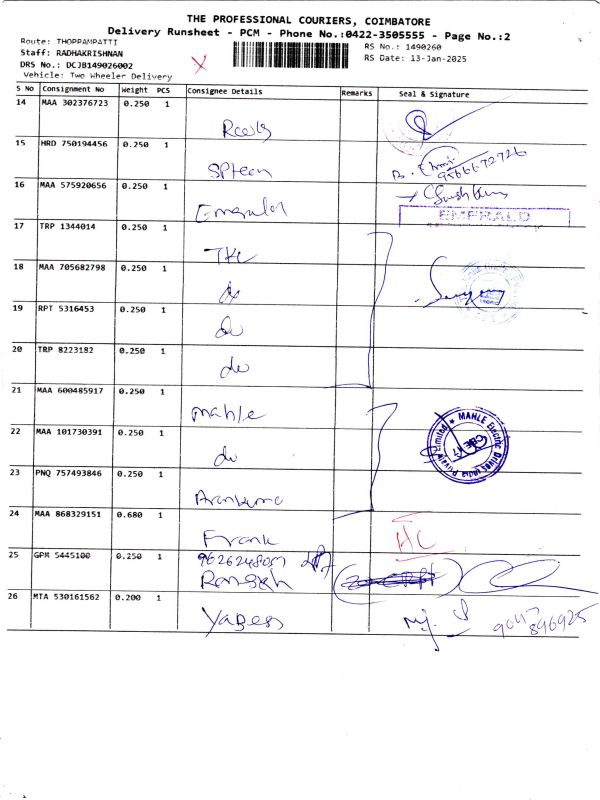 THE PROFESSIONAL COURIERS, COIMBATORE
Delivery Runsheet - PCM - Phone No.:0422-3505555 - Page No.:2
Route: THOPPAMPATTI
RS No.: 1490260
Staff: RADHAKRISHNAN
RS Date: 13-Jan-2025
DRS No.: DCJB149026002
Vehicle: Two Wheeler Delivery
S No Consignment No Weight PCS Consignee Details Remarks Seal & Signature
14 MAA 302376723 0.250 1
15 HRD 750194456 0.250 1
9566672726
16 MAA 575920656 0.250 1
Emerald
EMERALD
17 TRP 1344014 0.250 1
THC
18 MAA 705682798 0.250 1
do
19 RPT 5316453 0.250 1
do
20 TRP 8223182 0.250 1
do
21 MAA 600485917 0.250 1
Mahle
22 MAA 101730391 0.250 1
do
MAHLE Electric Drives India Private Limited
CBE 17
23 PNQ 757493846 0.250 1
24 MAA 868329151 0.680 1
Frank
HC
25 GPM 5445100 0.250 1
26 MTA 530161562 0.200 1
Yabesh